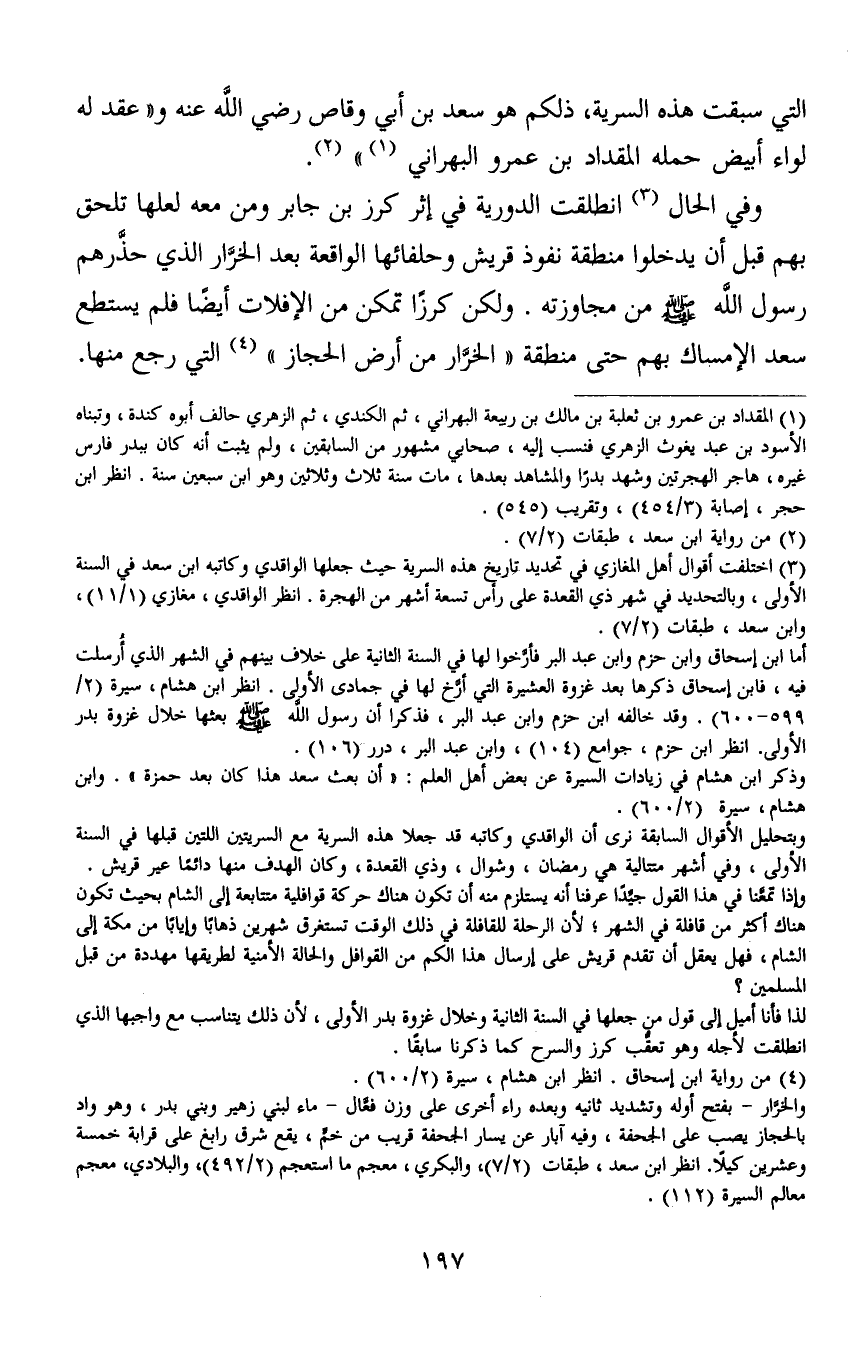 التي سبقت هذه السرية، ذلكم هو سعد بن أبي وقاص رضي اللَّه عنه و« عقد له
لواء أبيض حمله المقداد بن عمرو البهراني (١) » (٢).
وفي الحال (٣) انطلقت الدورية في إثر كرز بن جابر ومن معه لعلها تلحق
بهم قبل أن يدخلوا منطقة نفوذ قريش وحلفائها الواقعة بعد الخرَّار الذي حذَّرهم
رسول اللَّه ﷺ من مجاوزته . ولكن كرزًا تمكن من الإفلات أيضًا فلم يستطع
سعد الإمساك بهم حتى منطقة « الخرَّار من أرض الحجاز » (٤) التي رجع منها.
(١) المقداد بن عمرو بن ثعلبة بن مالك بن ربيعة البهراني ، ثم الكندي ، ثم الزهري حالف أبوه كندة ، وتبناه
الأسود بن عبد يغوث الزهري فنسب إليه ، صحابي مشهور من السابقين ، ولم يثبت أنه كان ببدر فارس
غيره ، هاجر الهجرتين وشهد بدرًا والمشاهد بعدها ، مات سنة ثلاث وثلاثين وهو ابن سبعين سنة . انظر ابن
حجر ، إصابة (٤٥٤/٣) ، وتقريب (٥٤٥) .
(٢) من رواية ابن سعد ، طبقات (٧/٢) .
(٣) اختلفت أقوال أهل المغازي في تحديد تاريخ هذه السرية حيث جعلها الواقدي وكاتبه ابن سعد في السنة
الأولى ، وبالتحديد في شهر ذي القعدة على رأس تسعة أشهر من الهجرة . انظر الواقدي ، مغازي (١١/١) ،
وابن سعد ، طبقات (٧/٢) .
أما ابن إسحاق وابن حزم وابن عبد البر فأرَّخوا لها في السنة الثانية على خلاف بينهم في الشهر الذي أُرسلت
فيه ، فابن إسحاق ذكرها بعد غزوة العشيرة التي أرَّخ لها في جمادى الأولى . انظر ابن هشام ، سيرة (٢/
٥٩٩-٦٠٠) . وقد خالفه ابن حزم وابن عبد البر ، فذكرا أن رسول اللَّه ﷺ بعثها خلال غزوة بدر
الأولى. انظر ابن حزم ، جوامع (١٠٤) ، وابن عبد البر ، درر (١٠٦) .
وذكر ابن هشام في زيادات السيرة عن بعض أهل العلم : « أن بعث سعد هذا كان بعد حمزة » . وابن
هشام ، سيرة (٦٠٠/٢) .
وبتحليل الأقوال السابقة نرى أن الواقدي وكاتبه قد جعلا هذه السرية مع السريتين اللتين قبلها في السنة
الأولى ، وفي أشهر متتالية هي رمضان ، وشوال ، وذي القعدة ، وكان الهدف منها دائمًا عير قريش .
وإذا تمعَّنا في هذا القول جيِّدًا عرفنا أنه يستلزم منه أن تكون هناك حركة قوافلية متتابعة إلى الشام بحيث تكون
هناك أكثر من قافلة في الشهر ؛ لأن الرحلة للقافلة في ذلك الوقت تستغرق شهرين ذهابًا وإيابًا من مكة إلى
الشام ، فهل يعقل أن تقدم قريش على إرسال هذا الكم من القوافل والحالة الأمنية لطريقها مهددة من قبل
المسلمين ؟
لذا فأنا أميل إلى قول من جعلها في السنة الثانية وخلال غزوة بدر الأولى ، لأن ذلك يتناسب مع واجبها الذي
انطلقت لأجله وهو تعقُّب كرز والسرح كما ذكرنا سابقًا .
(٤) من رواية ابن إسحاق . انظر ابن هشام ، سيرة (٦٠٠/٢) .
والخرَّار – بفتح أوله وتشديد ثانيه وبعده راء أخرى على وزن فعَّال – ماء لبني زهير وبني بدر ، وهو واد
بالحجاز يصب على الجحفة ، وفيه آبار عن يسار الجحفة قريب من خمٍّ ، يقع شرق رابغ على قرابة خمسة
وعشرين كيلًا. انظر ابن سعد ، طبقات (٧/٢)، والبكري ، معجم ما استعجم (٤٩٢/٢)، والبلادي، معجم
معالم السيرة (١١٢) .
١٩٧